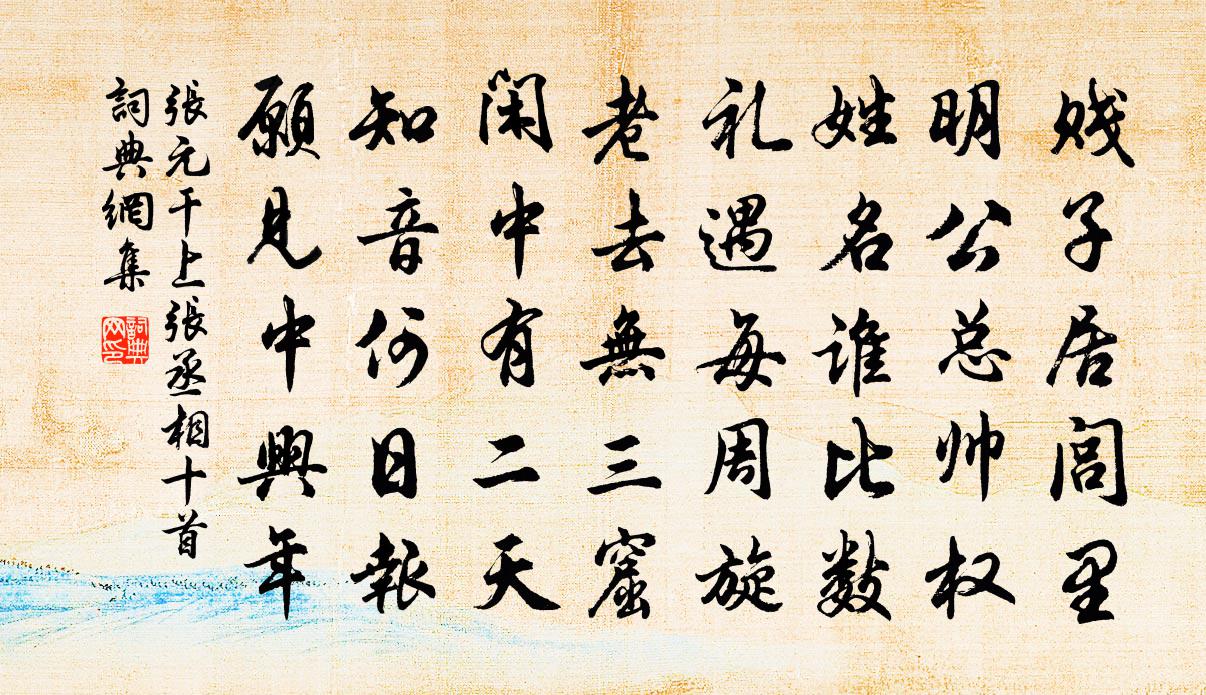 贱子居闾里
明公总帅权
姓名谁比数
礼遇每周旋
老去無三窟
闲中有二天
知音何日報
願見中興年
張元干上張丞相十首
詞典網集
詞典
网印